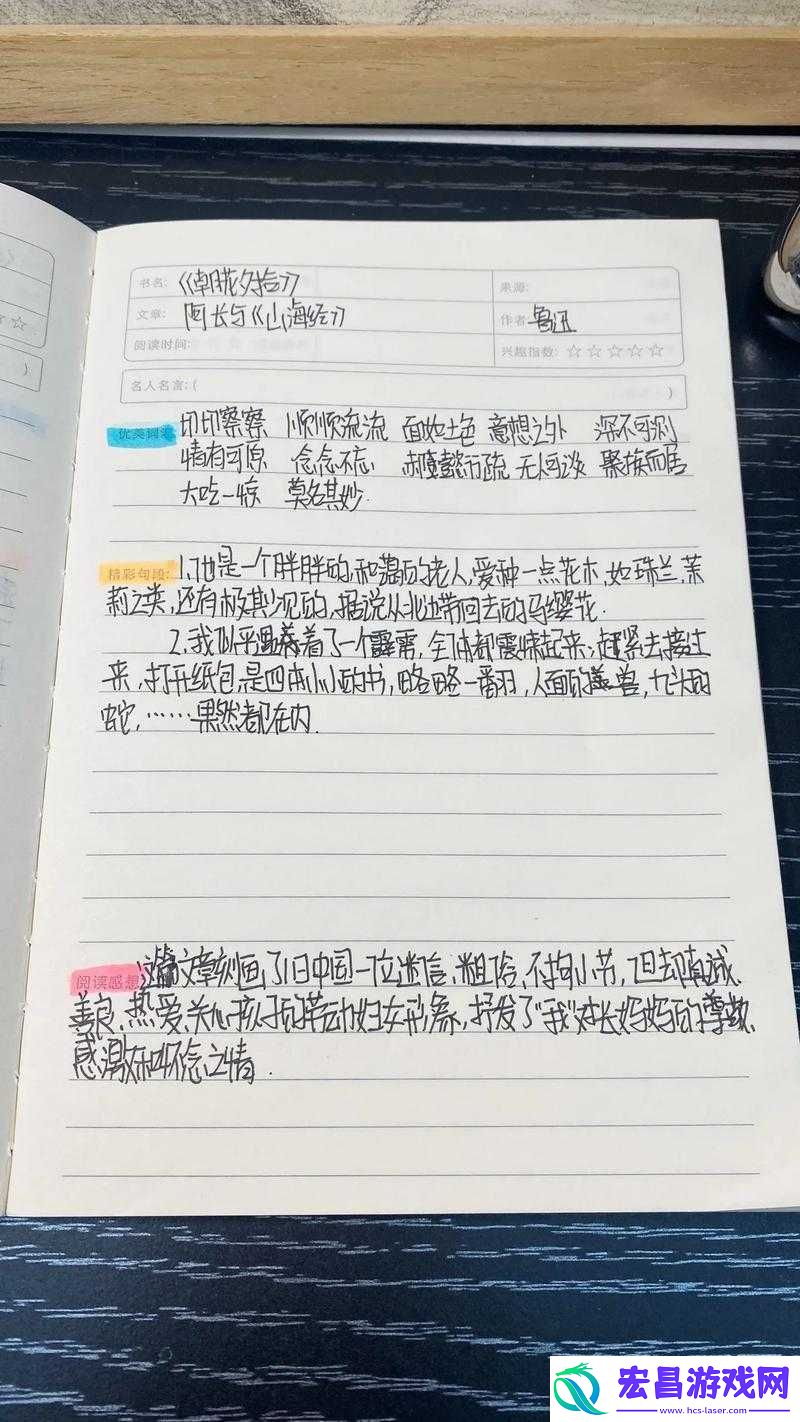 书名: 《朝花夕拾》
来源:
文章: 阿长与《山海经》
作者: 鲁迅
阅读时间:
兴趣指数: ☆☆☆☆☆
名人名言: ( )
优美词汇 切切察察 顺顺流流 面如土色 意想之外 深不可测
情有可原 念念不忘 疏懒 无人可谈 聚族而居
大吃一惊 莫名其妙.
精彩句段: 1.他是一个胖胖的,和蔼的老人,爱种一点花木,如珠兰,茉
莉之类,还有极其少见的,据说从北边带回去的马缨花.
2.我似乎遇着了一个霹雳,全体都震悚起来;赶紧去接过
来,打开纸包,是四本小小的书,略略一翻,人面的兽,九头的
蛇,……果然都在内.
阅读感想 这篇文章刻画了旧中国一位迷信、粗俗、不拘小节,但却真诚、
善良、热爱、关心孩子的劳动妇女形象,抒发了“我”对长妈妈的尊敬、
感激和怀念之情.
宏昌游戏网
www.hcs-laser.com